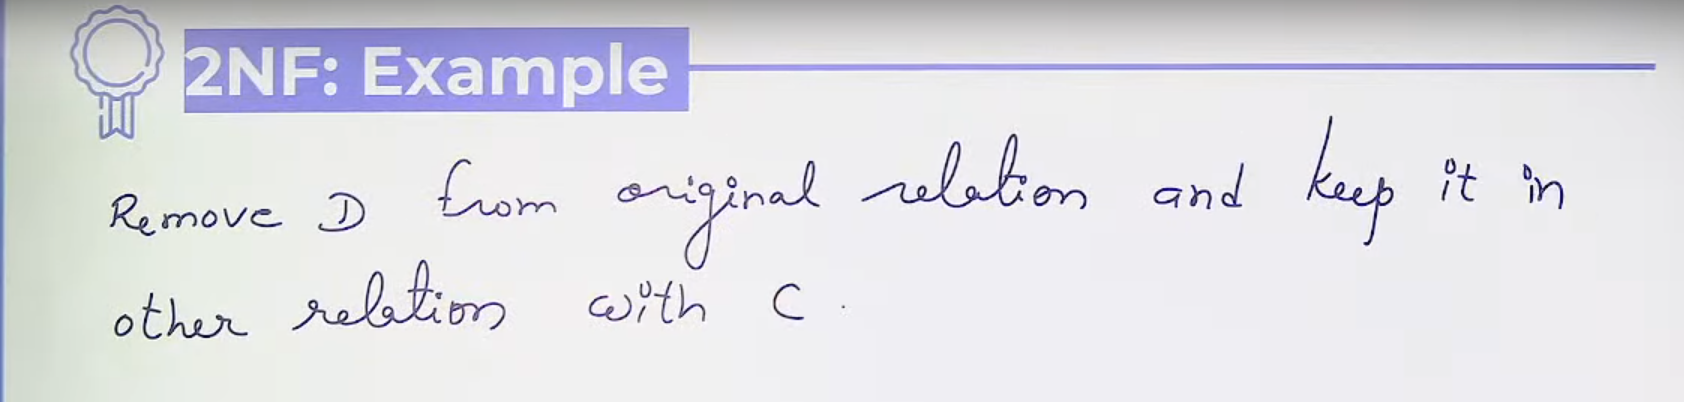 2NF: Example
Remove D from original relation and keep it in
other relation with C.